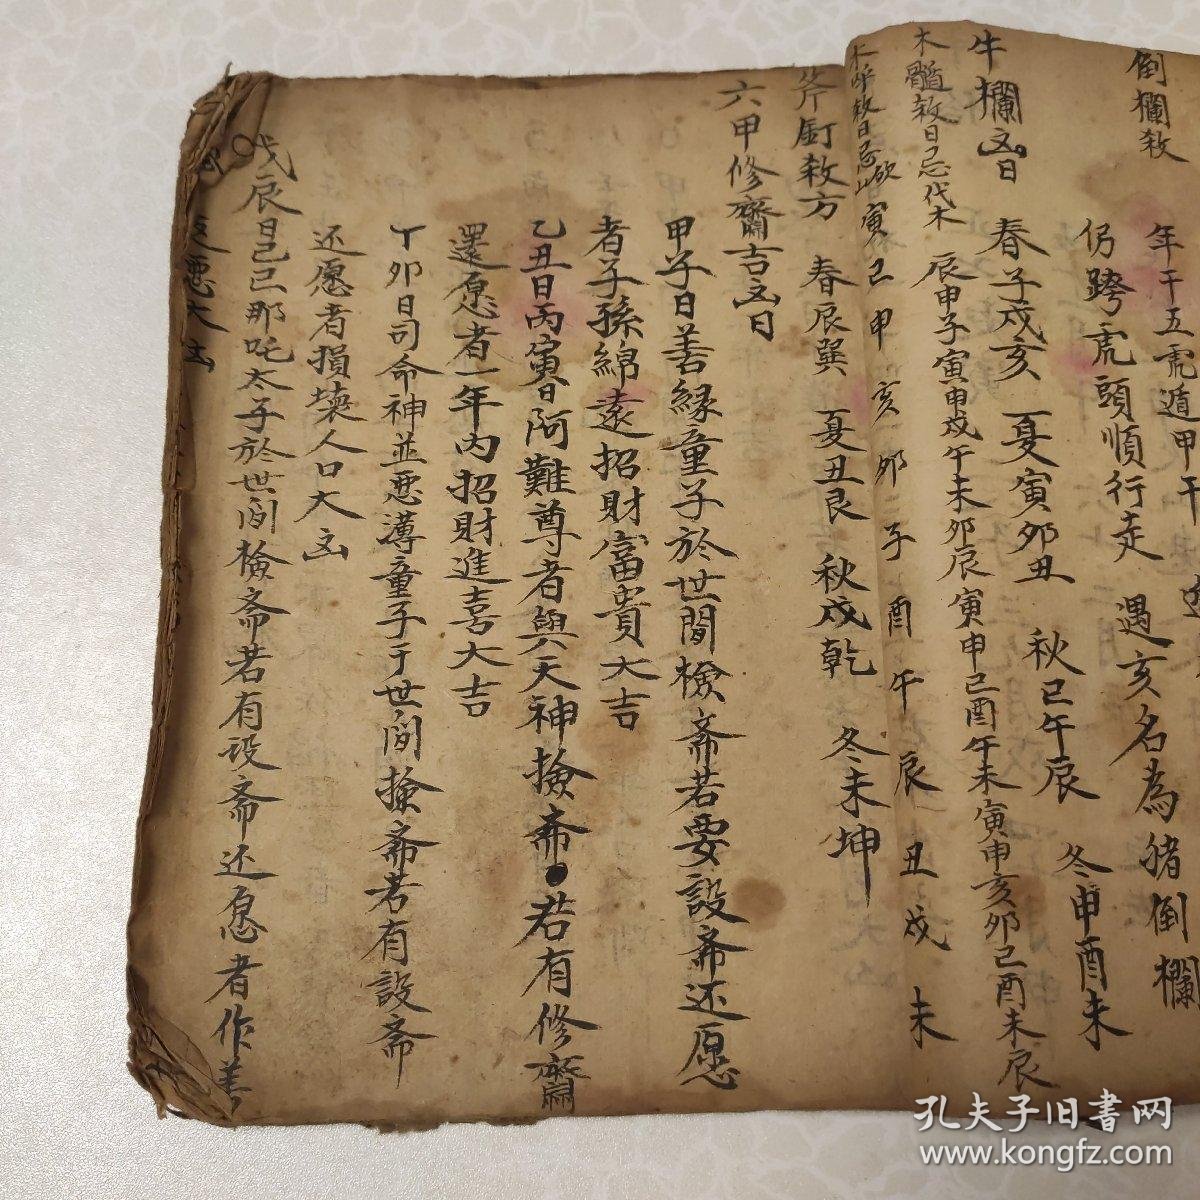 倒欄殺
年干五虎遁甲干
仍跨虎頭順行走 遇亥名為猪倒欄
牛欄凶日 春子戌亥 夏寅卯丑 秋巳午辰 冬申酉未
木髓殺日忌伐木 辰申子寅申戌午未卯辰寅申巳酉午未寅申亥卯巳酉未辰
殺日忌砍 寅巳申亥卯子酉午辰丑戌未
斧釘殺方 春辰巽 夏丑艮 秋戌乾 冬未坤
六甲修齋吉凶日
甲子日善緣童子於世間檢斋若要設斋还愿
者子孫綿遠招財富貴大吉
乙丑日丙寅日阿難尊者與天神撿斋若有修齋
還愿者一年內招財進喜大吉
丁卯日司命神並恶薄童子于世间撿斋若有設斋
还愿者損壞人口大凶
戊辰日己巳那吒太子於世间檢斋若有設斋还愿者作善
反恶大凶
孔夫子旧書网
www.kongfz.com